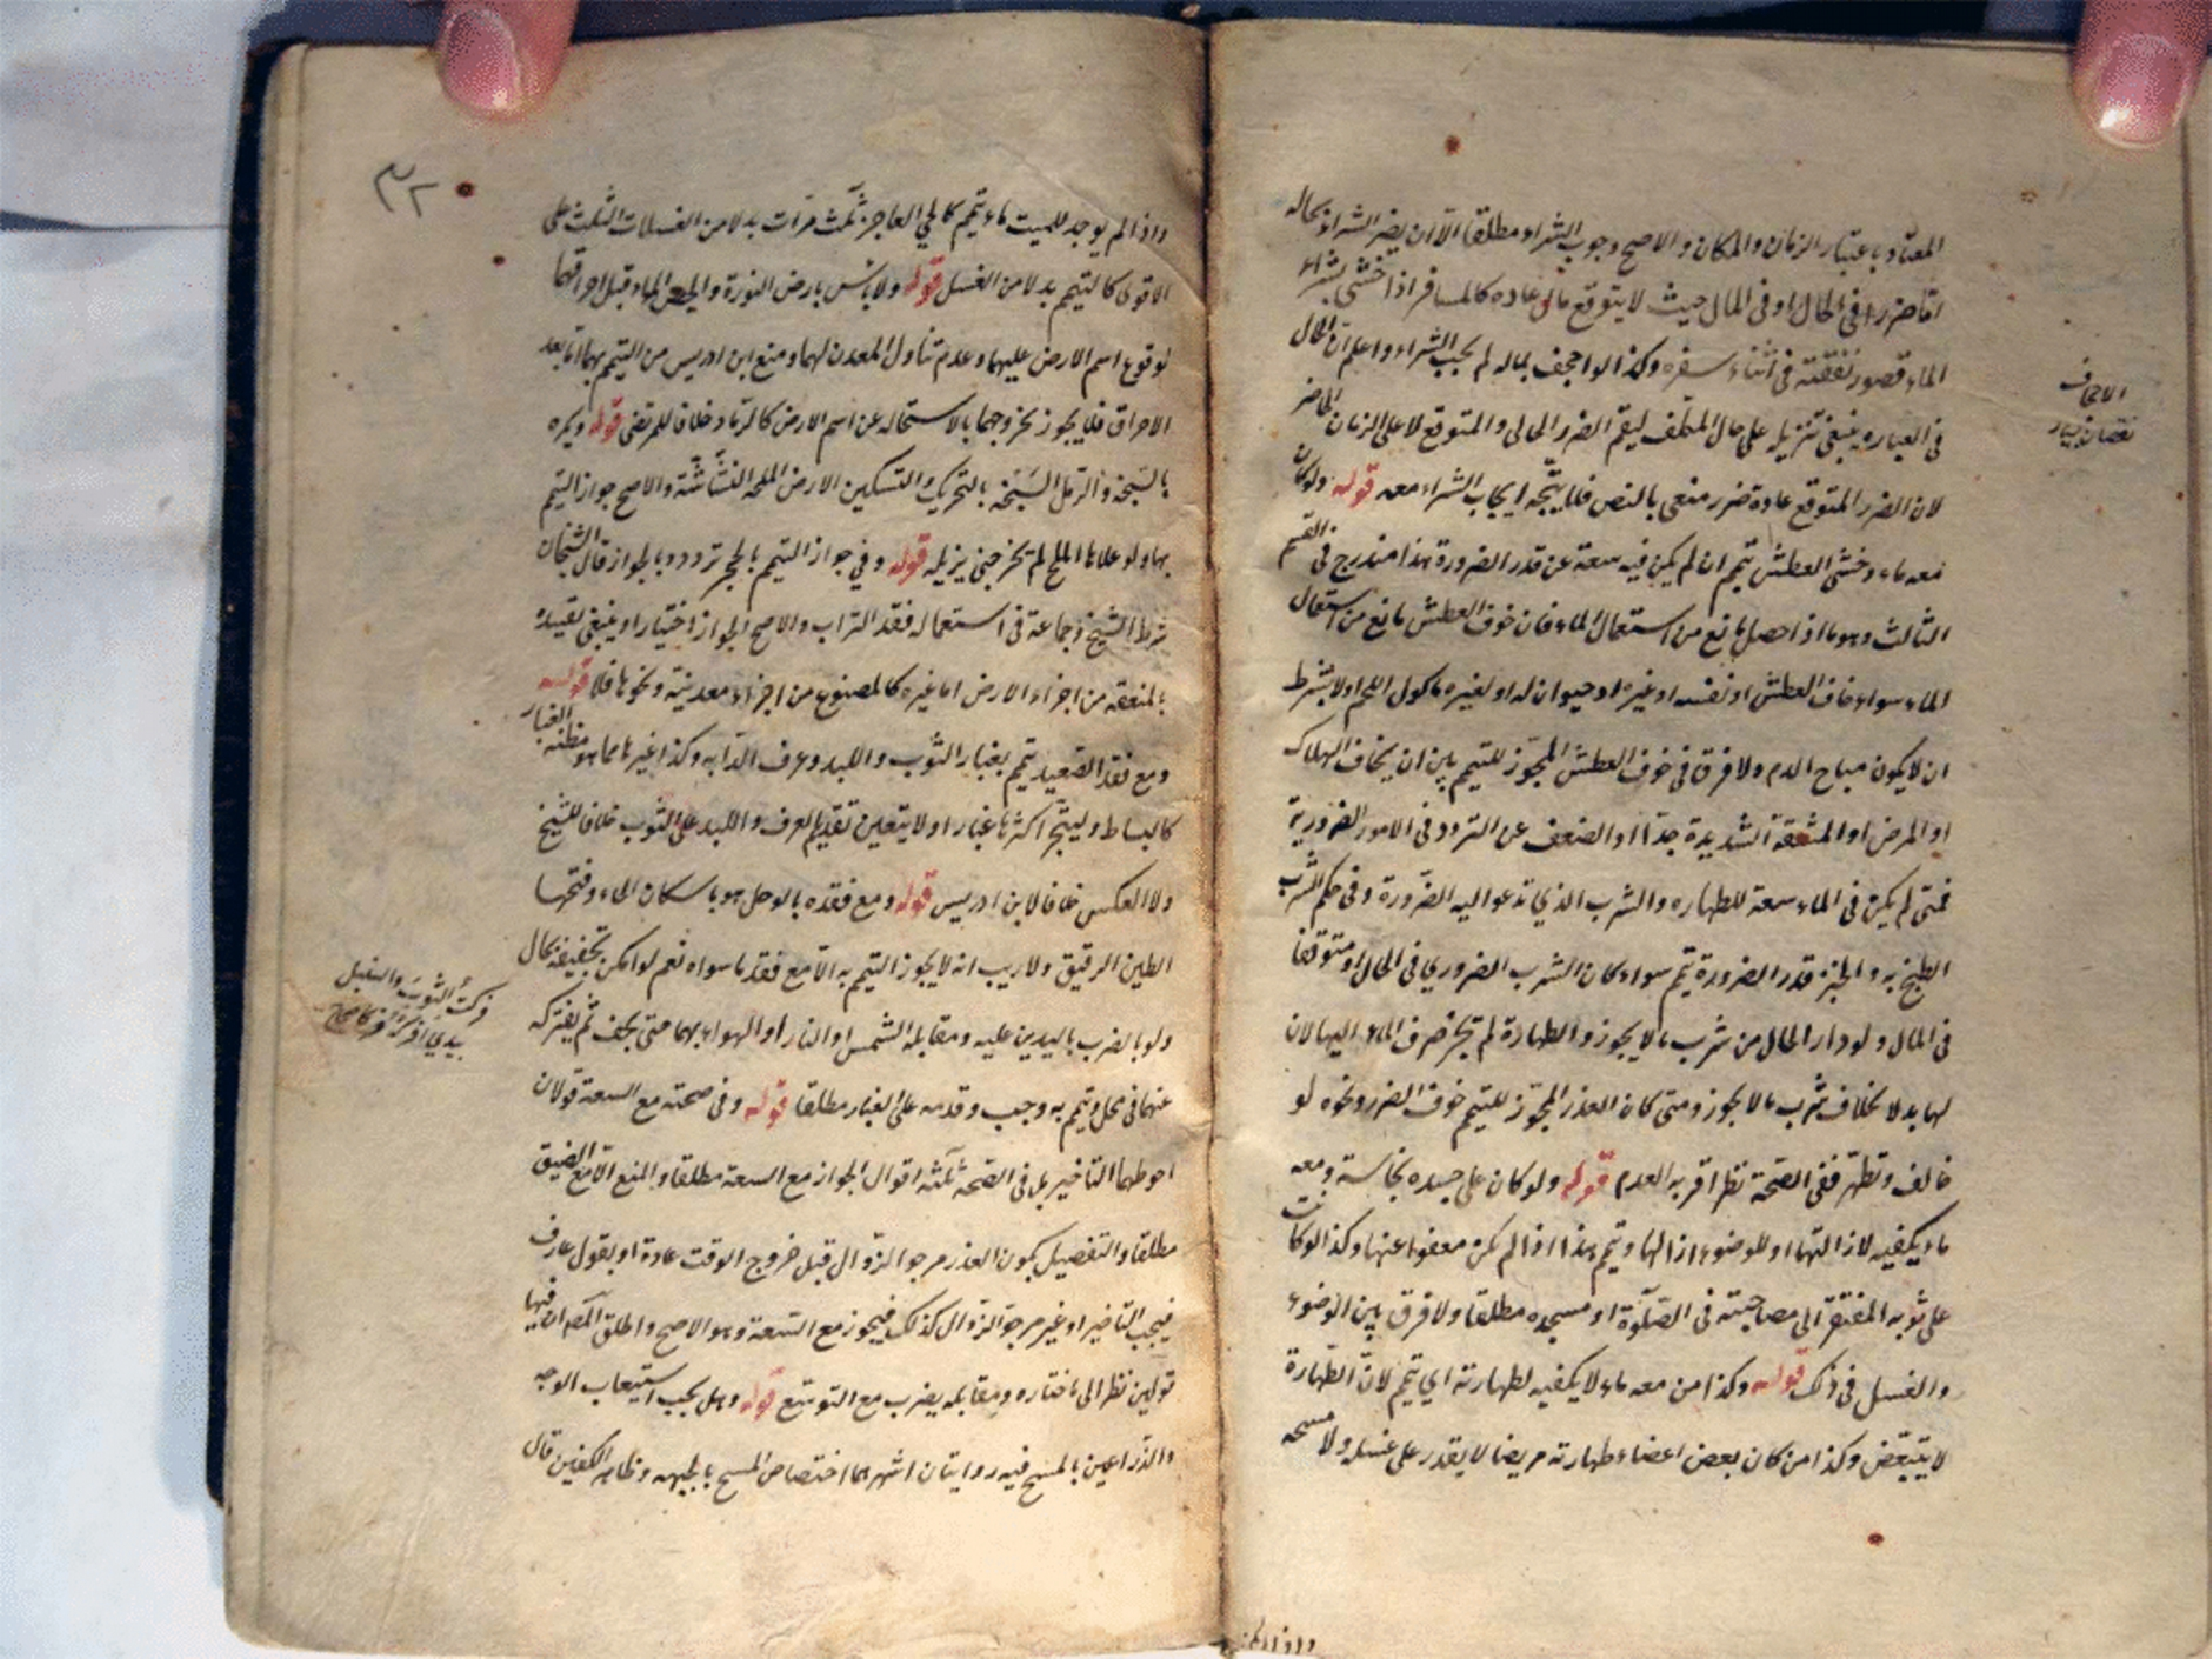 المعتاد باعتبار الزمان والمكان والاصح وجوب الشراء مطلقا الا ان يضر الشراء بحاله
اما ضررا في الحال او في المال حيث لا يتوقع مال عاده كالمسافر اذا خشي بشراء
الماء قصور نفقته في اثناء سفره وكذا لو اجحف بماله لم يجب الشراء واعلم ان الحال
في العباره ينبغي تنزيله على حال المكلف ليعم الضرر الحالي والمتوقع لا على الزمان الحاضر
لان الضرر المتوقع عادة ضرر منفي بالنص فلا يتجه ايجاب الشراء معه قوله ولو كان
معه ماء وخشي العطش تيمم ان لم يكن فيه سعة عن قدر الضرورة هذا مندرج في القسم
الثالث وهو ما اذا حصل مانع من استعمال الماء فان خوف العطش مانع من استعمال
الماء سواء خاف العطش او نفسه او غيره او حيوان له او لغيره ماكول اللحم او لا بشرط
ان لا يكون مباح الدم ولا فرق في خوف العطش المجوز للتيمم بين ان يخاف الهلاك
او المرض او المشقة الشديدة جدا او الضعف عن التردد في الامور الضرورية
فمتى لم يكن في الماء سعة للطهاره والشرب الذي تدعو اليه الضرورة وفي حكم الشرب
الطبخ به والخبز قدر الضرورة تيمم سواء كان الشرب الضروري في الحال او متوقعا
في المال ولو دار الحال من شرب ما لا يجوز والطهارة لم تجز صرف الماء اليها لان
لها بدلا بخلاف شرب ما لا يجوز ومتى كان العذر المجوز للتيمم خوف الضرر ونحوه لو
خالف وتطهر ففي الصحة نظر اقربه العدم قوله ولو كان على جسده نجاسة ومعه
ماء يكفيه لازالتها او للوضوء ازالها وتيمم هذا اذا لم تكن معفوا عنها وكذا لو كانت
على ثوبه المفتقر الى مصاحبته في الصلوة او مسجده مطلقا ولا فرق بين الوضوء
والغسل في ذلك قوله وكذا من معه ماء لا يكفيه لطهارته اي تيمم لان الطهارة
لا يتبعض وكذا من كان بعض اعضاء طهارته مريضا لا يقدر على غسله ولا مسحه
الاجحاف
نقصان بسيار
٣٢
واذا لم يوجد للميت ماء تيمم كالحي العاجز ثلث مرات بدلا من الغسلات الثلث على
الاقوى كالتيمم بدلا من الغسل قوله ولا باس بارض النورة والجص الماء قبل احراقهما
لوقوع اسم الارض عليهما وعدم تناول المعدن لهما ومنع ابن ادريس من التيمم بهما اما بعد
الاحراق فلا يجوز لخروجهما بالاستحاله عن اسم الارض كالرماد خلافا للمرتضى قوله ويكره
بالسبخة والرمل السبخة بالتحريك والتسكين الارض المالحه النشاشة والاصح جواز التيمم
بها ولو علاها الملح لم تجز حتى يزيله قوله وفي جواز التيمم بالحجر تردد وبالجواز قال الشيخان
شرط الشيخ وجماعة في استعماله فقد التراب والاصح الجواز اختيارا وينبغي تقييده
بالمنعقد من اجزاء الارض اما غيره كالمصنوع من اجزاء معدنية ونحوها فلا قوله
ومع فقد الصعيد تيمم بغبار الثوب واللبد وعرف الدابه وكذا غيرها مما هو مظنه الغبار
كالبساط وليتحر اكثرها غبارا ولا يتعين تقديم العرف واللبد على الثوب خلافا للشيخ
ولا العكس خلافا لابن ادريس قوله ومع فقده بالوحل هو باسكان الحاء وفتحها
الطين الرقيق ولا ريب انه لا يجوز التيمم به الا مع فقد ما سواه نعم لو امكن تجفيفه بحال
ولو بالضرب باليدين عليه ومقابله الشمس او النار او الهواء بهما حتى يجف ثم يفركه
عنهما في محل ويتيمم به وجب وقدمه على الغبار مطلقا قوله وفي صحته مع السعة قولان
احوطهما التاخير بل في الصحه ثلثه اقوال الجواز مع السعة مطلقا والمنع الا مع الضيق
مطلقا والتفصيل بكون العذر مرجو الزوال قبل خروج الوقت عادة او بقول عارف
فيجب التاخير او غير مرجو الزوال كذلك فيجوز مع السعة وهو الاصح واطلق المصـ ان فيها
قولين نظرا الى ما ختاره ومقابله يضرب مع التوسع قوله وهل يجب استيعاب الوجه
والذراعين بالمسح فيه روايتان اشهرهما اختصاص المسح بالجبهه وظاهر الكفين قال
فركت الثوب والسنبل
بيدي افركه فركا صحاح